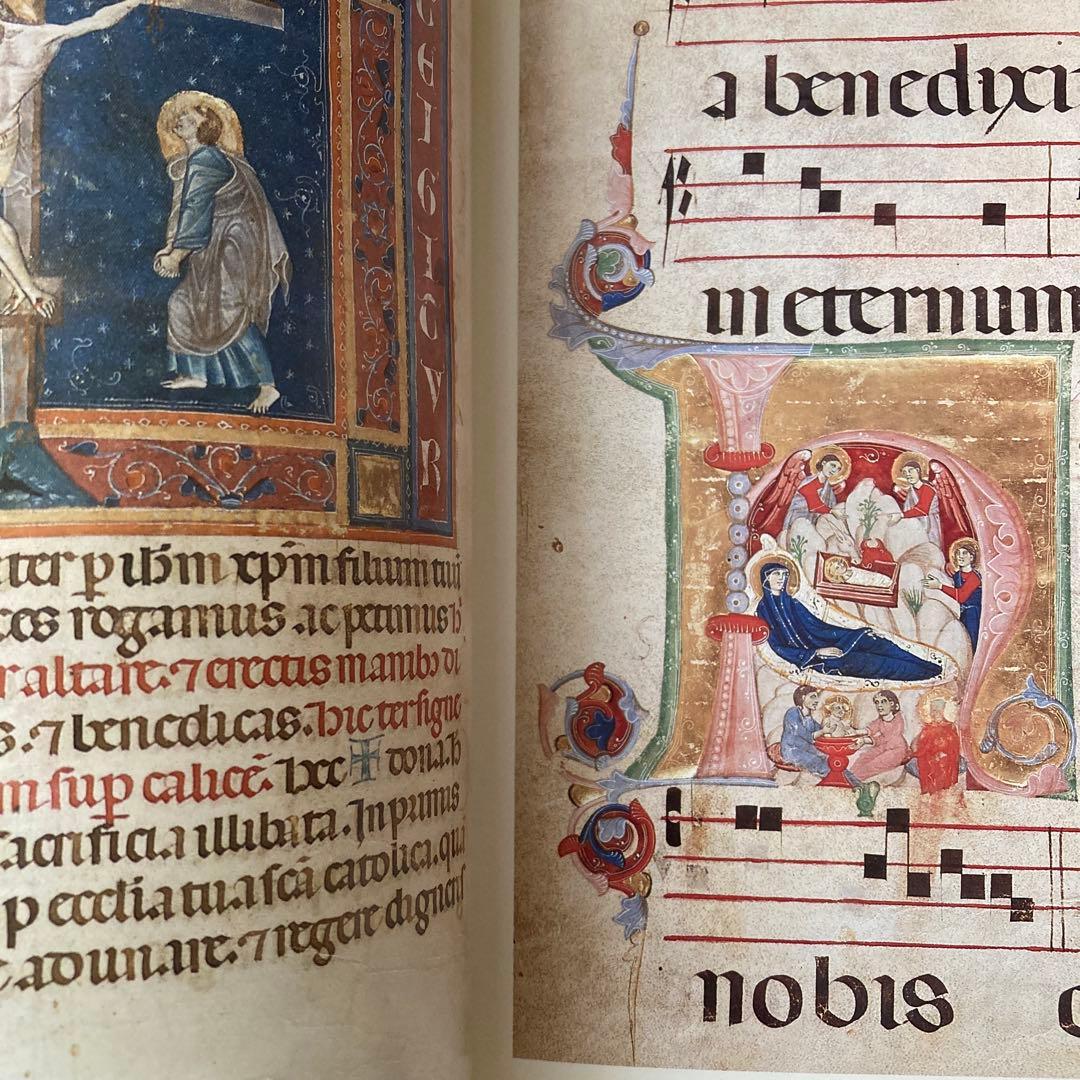 C
E
I
G
I
T
U
R
ter p ih̄m xp̄m filium tuū
ces rogamus ac petimus
altare. ⁊ erectis manibȝ
⁊ benedicas. hic ter signe
sup calicē. hec ✝ dona. h
sacrificia illibata. In primis
p ecclīa tua sc̄a catolica. quā
adunare. ⁊ regere digneris
a benedixi
in eternum
H
nobis